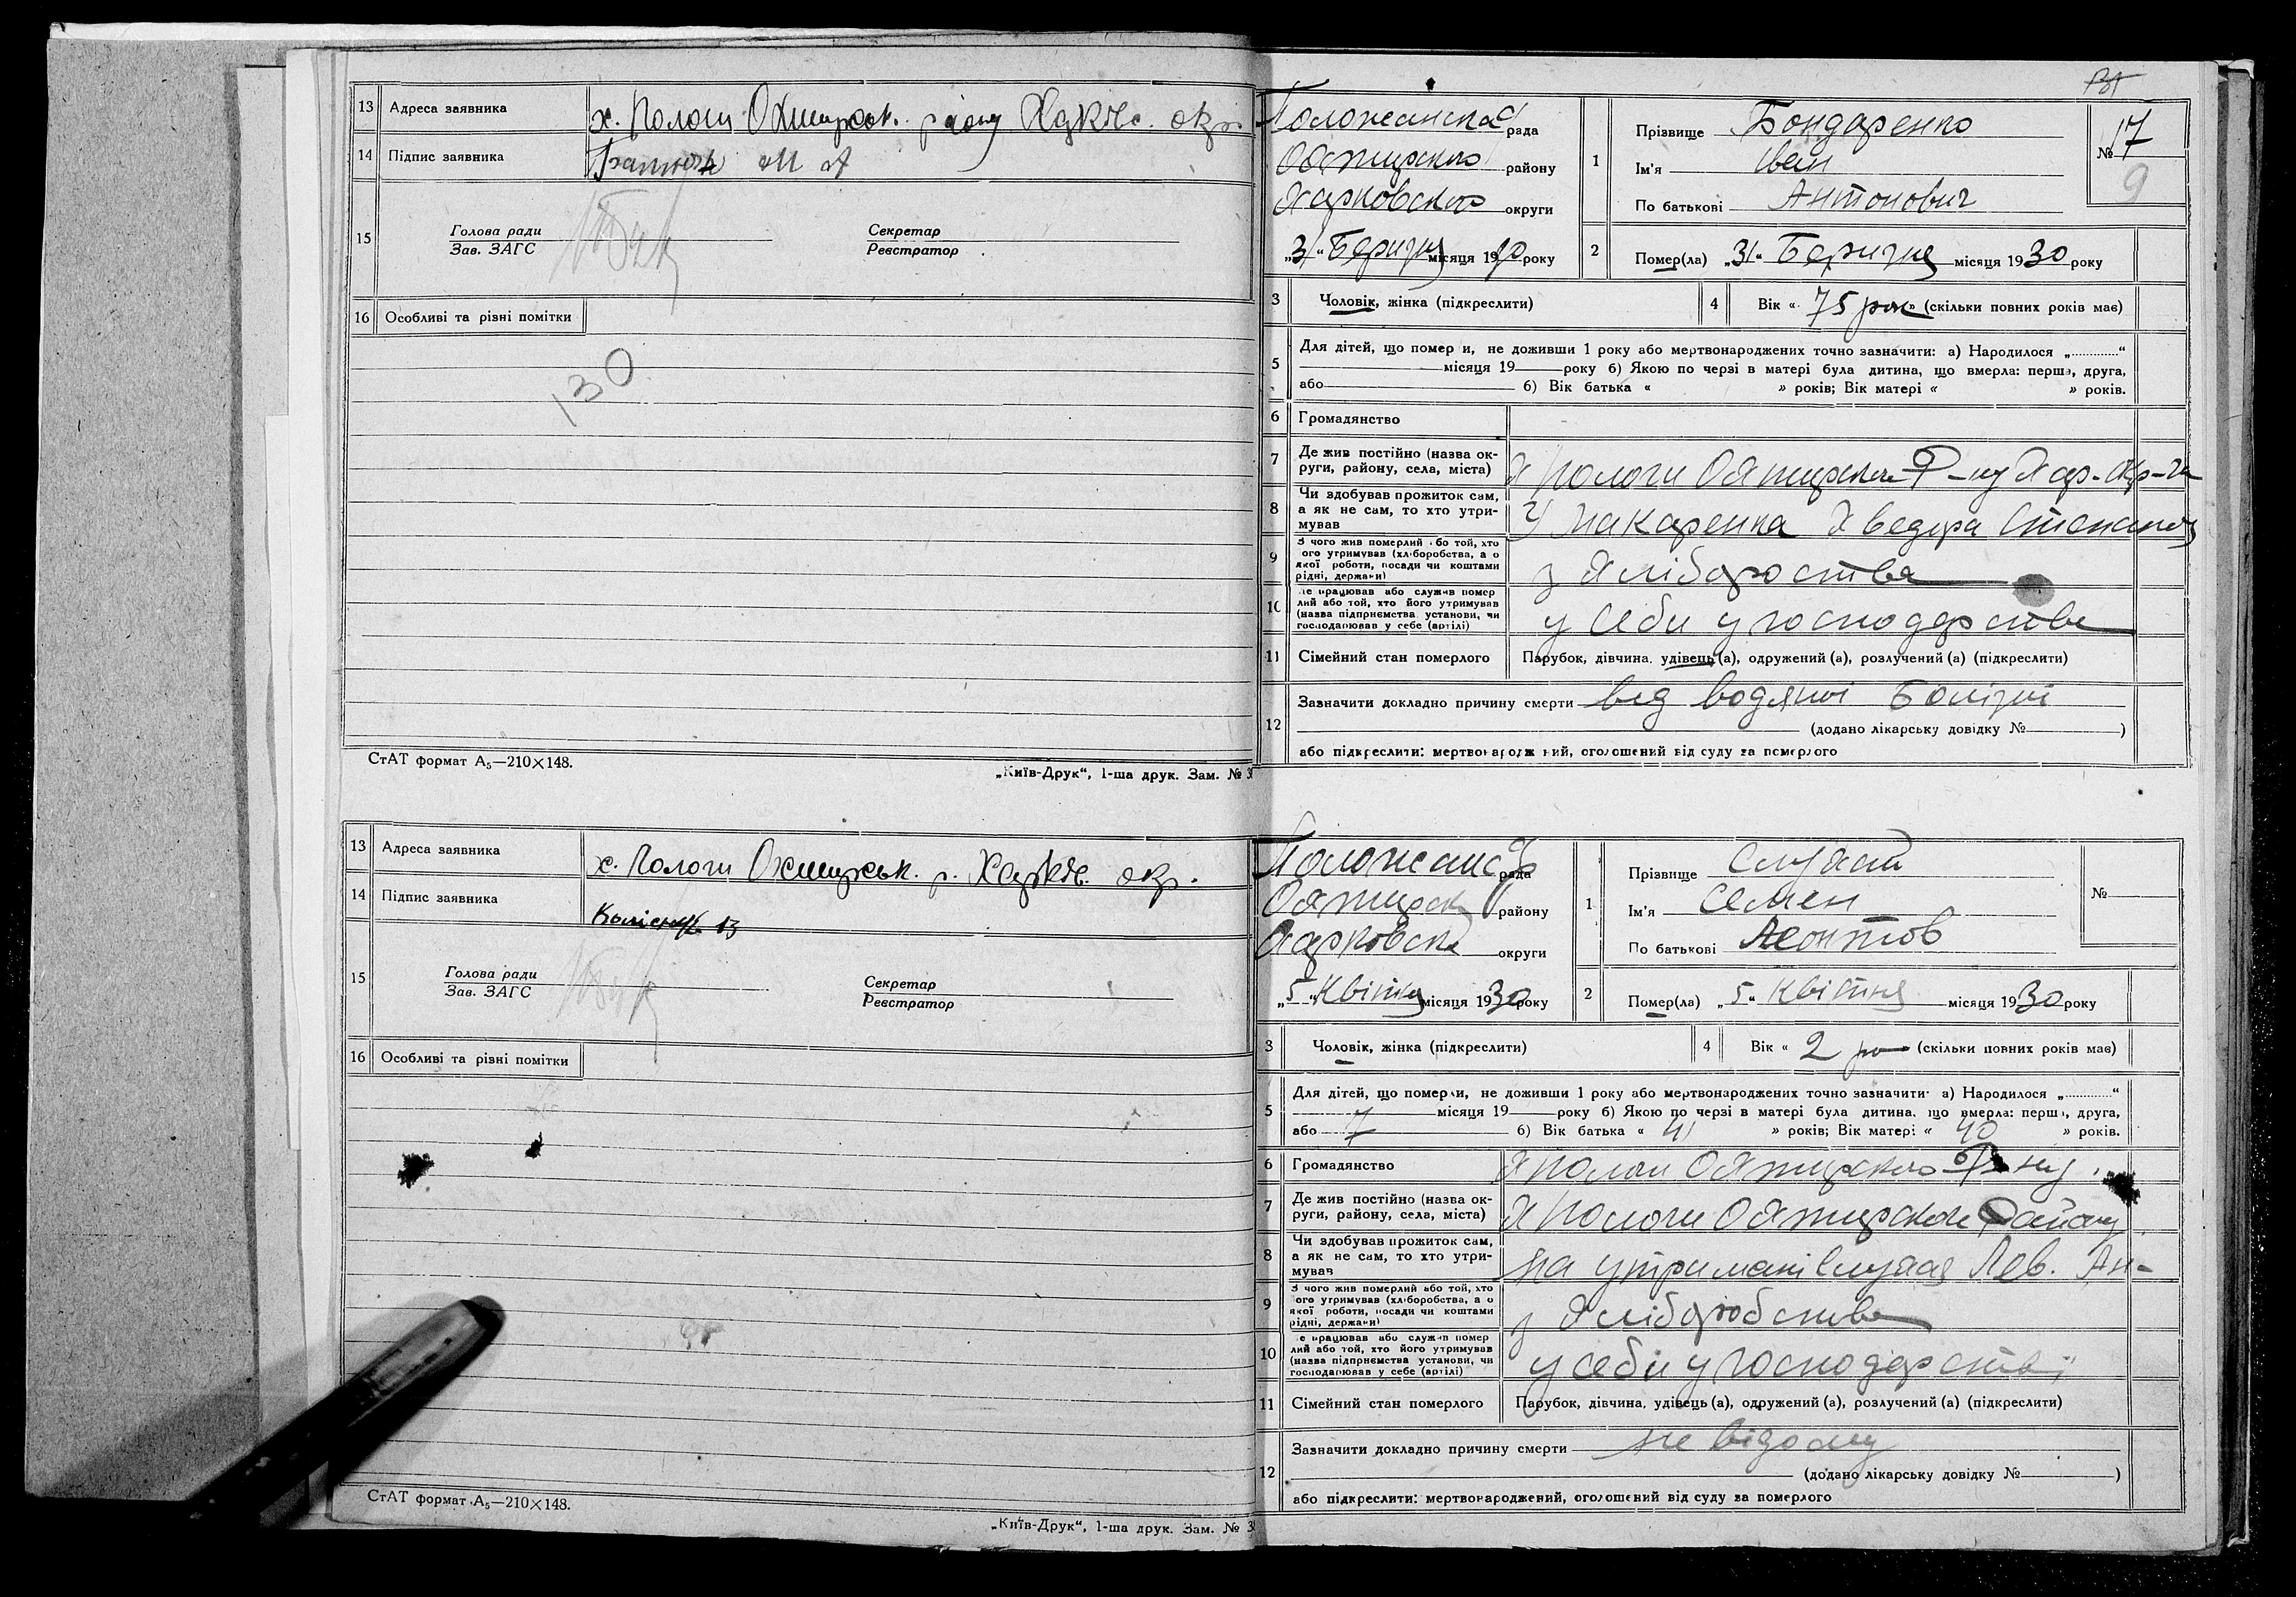 13 Адреса заявника х. Пологи Охтирськ. району Харківс. окр.
14 Підпис заявника
15 Голова ради Секретар
Зав. ЗАГС Реєстратор
16 Особливі та різні помітки
130
СтАТ формат А₅—210×148.
„Київ-Друк“, 1-ша друк. Зам. № 3
рада
району
округи
„31“ Березня місяця 1930 року
1 Прізвище Бондаренко
Ім'я Іван
По батькові Антонович
№ 17
9
2 Помер(ла) „31“ Березня місяця 1930 року
3 Чоловік, жінка (підкреслити)
4 Вік «75 рок» (скільки повних років має)
5 Для дітей, що померли, не доживши 1 року або мертвонароджених точно зазначити: а) Народилося „............“
місяця 19 року б) Якою по черзі в матері була дитина, що вмерла: перша, друга,
або б) Вік батька « » років; Вік матері « » років.
6 Громадянство
7 Де жив постійно (назва ок-
руги, району, села, міста) Х Пологи
8 Чи здобував прожиток сам,
а як не сам, то хто утри-
мував У Макаренка Хведора
9 З чого жив померлий або той, хто
його утримував (хліборобства, а о
якої роботи, посади чи коштами
рідні, держави) з
10 Де працював або служив помер
лий або той, хто його утримував
(назва підприємства установи, чи
господарював у себе (артілі) у себи у господарстве
11 Сімейний стан померлого Парубок, дівчина, удівець (а), одружений (а), розлучений (а) (підкреслити)
12 Зазначити докладно причину смерти від водяної болізні
(додано лікарську довідку № )
або підкреслити: мертвонароджений, оголошений від суду за померлого
13 Адреса заявника х. Пологи Охтирськ. р. Харків. окр.
14 Підпис заявника
15 Голова ради Секретар
Зав. ЗАГС Реєстратор
16 Особливі та різні помітки
СтАТ формат А₅—210×148.
„Київ-Друк“, 1-ша друк. Зам. № 3
рада
району
округи
„5“ Квітня місяця 1930 року
1 Прізвище Слухай
Ім'я Семен
По батькові Леонтов
№
2 Помер(ла) „5“ Квітня місяця 1930 року
3 Чоловік, жінка (підкреслити)
4 Вік «2 ро (скільки повних років має)
5 Для дітей, що померли, не доживши 1 року або мертвонароджених точно зазначити: а) Народилося „............“
місяця 19 року б) Якою по черзі в матері була дитина, що вмерла: перша, друга,
або 7 б) Вік батька « 41 » років; Вік матері « 40 » років.
6 Громадянство Х Пологи
7 Де жив постійно (назва ок-
руги, району, села, міста) Х Пологи Району
8 Чи здобував прожиток сам,
а як не сам, то хто утри-
мував на утримані Слухая Лев. Ан-
9 З чого жив померлий або той, хто
його утримував (хліборобства, а о
якої роботи, посади чи коштами
рідні, держави) з хліборобства
10 Де працював або служив помер
лий або той, хто його утримував
(назва підприємства установи, чи
господарював у себе (артілі) у себи у господарстві
11 Сімейний стан померлого Парубок, дівчина, удівець (а), одружений (а), розлучений (а) (підкреслити)
12 Зазначити докладно причину смерти не відому
(додано лікарську довідку № )
або підкреслити: мертвонароджений, оголошений від суду за померлого